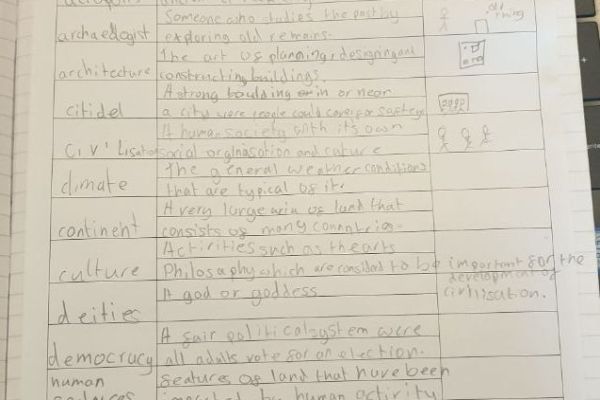 Someone who studies the past by
old thing
archaeologist exploring old remains.
The art of planning, designing and
architecture constructing buildings.
A strong boulding or in or near
citidel a city were people could cover for saftey
A human society with its own
Civilisation and
The general weather conditions
climate that are typical of it.
A very large of land that
continent consists of many
Activities such as the arts
culture Philosophy which are considerd to be important for the
development of
civilisation.
A god or goddess
deities
A fair political system were
democracy all adults vote for an election.
human features of land that have been
by human activity